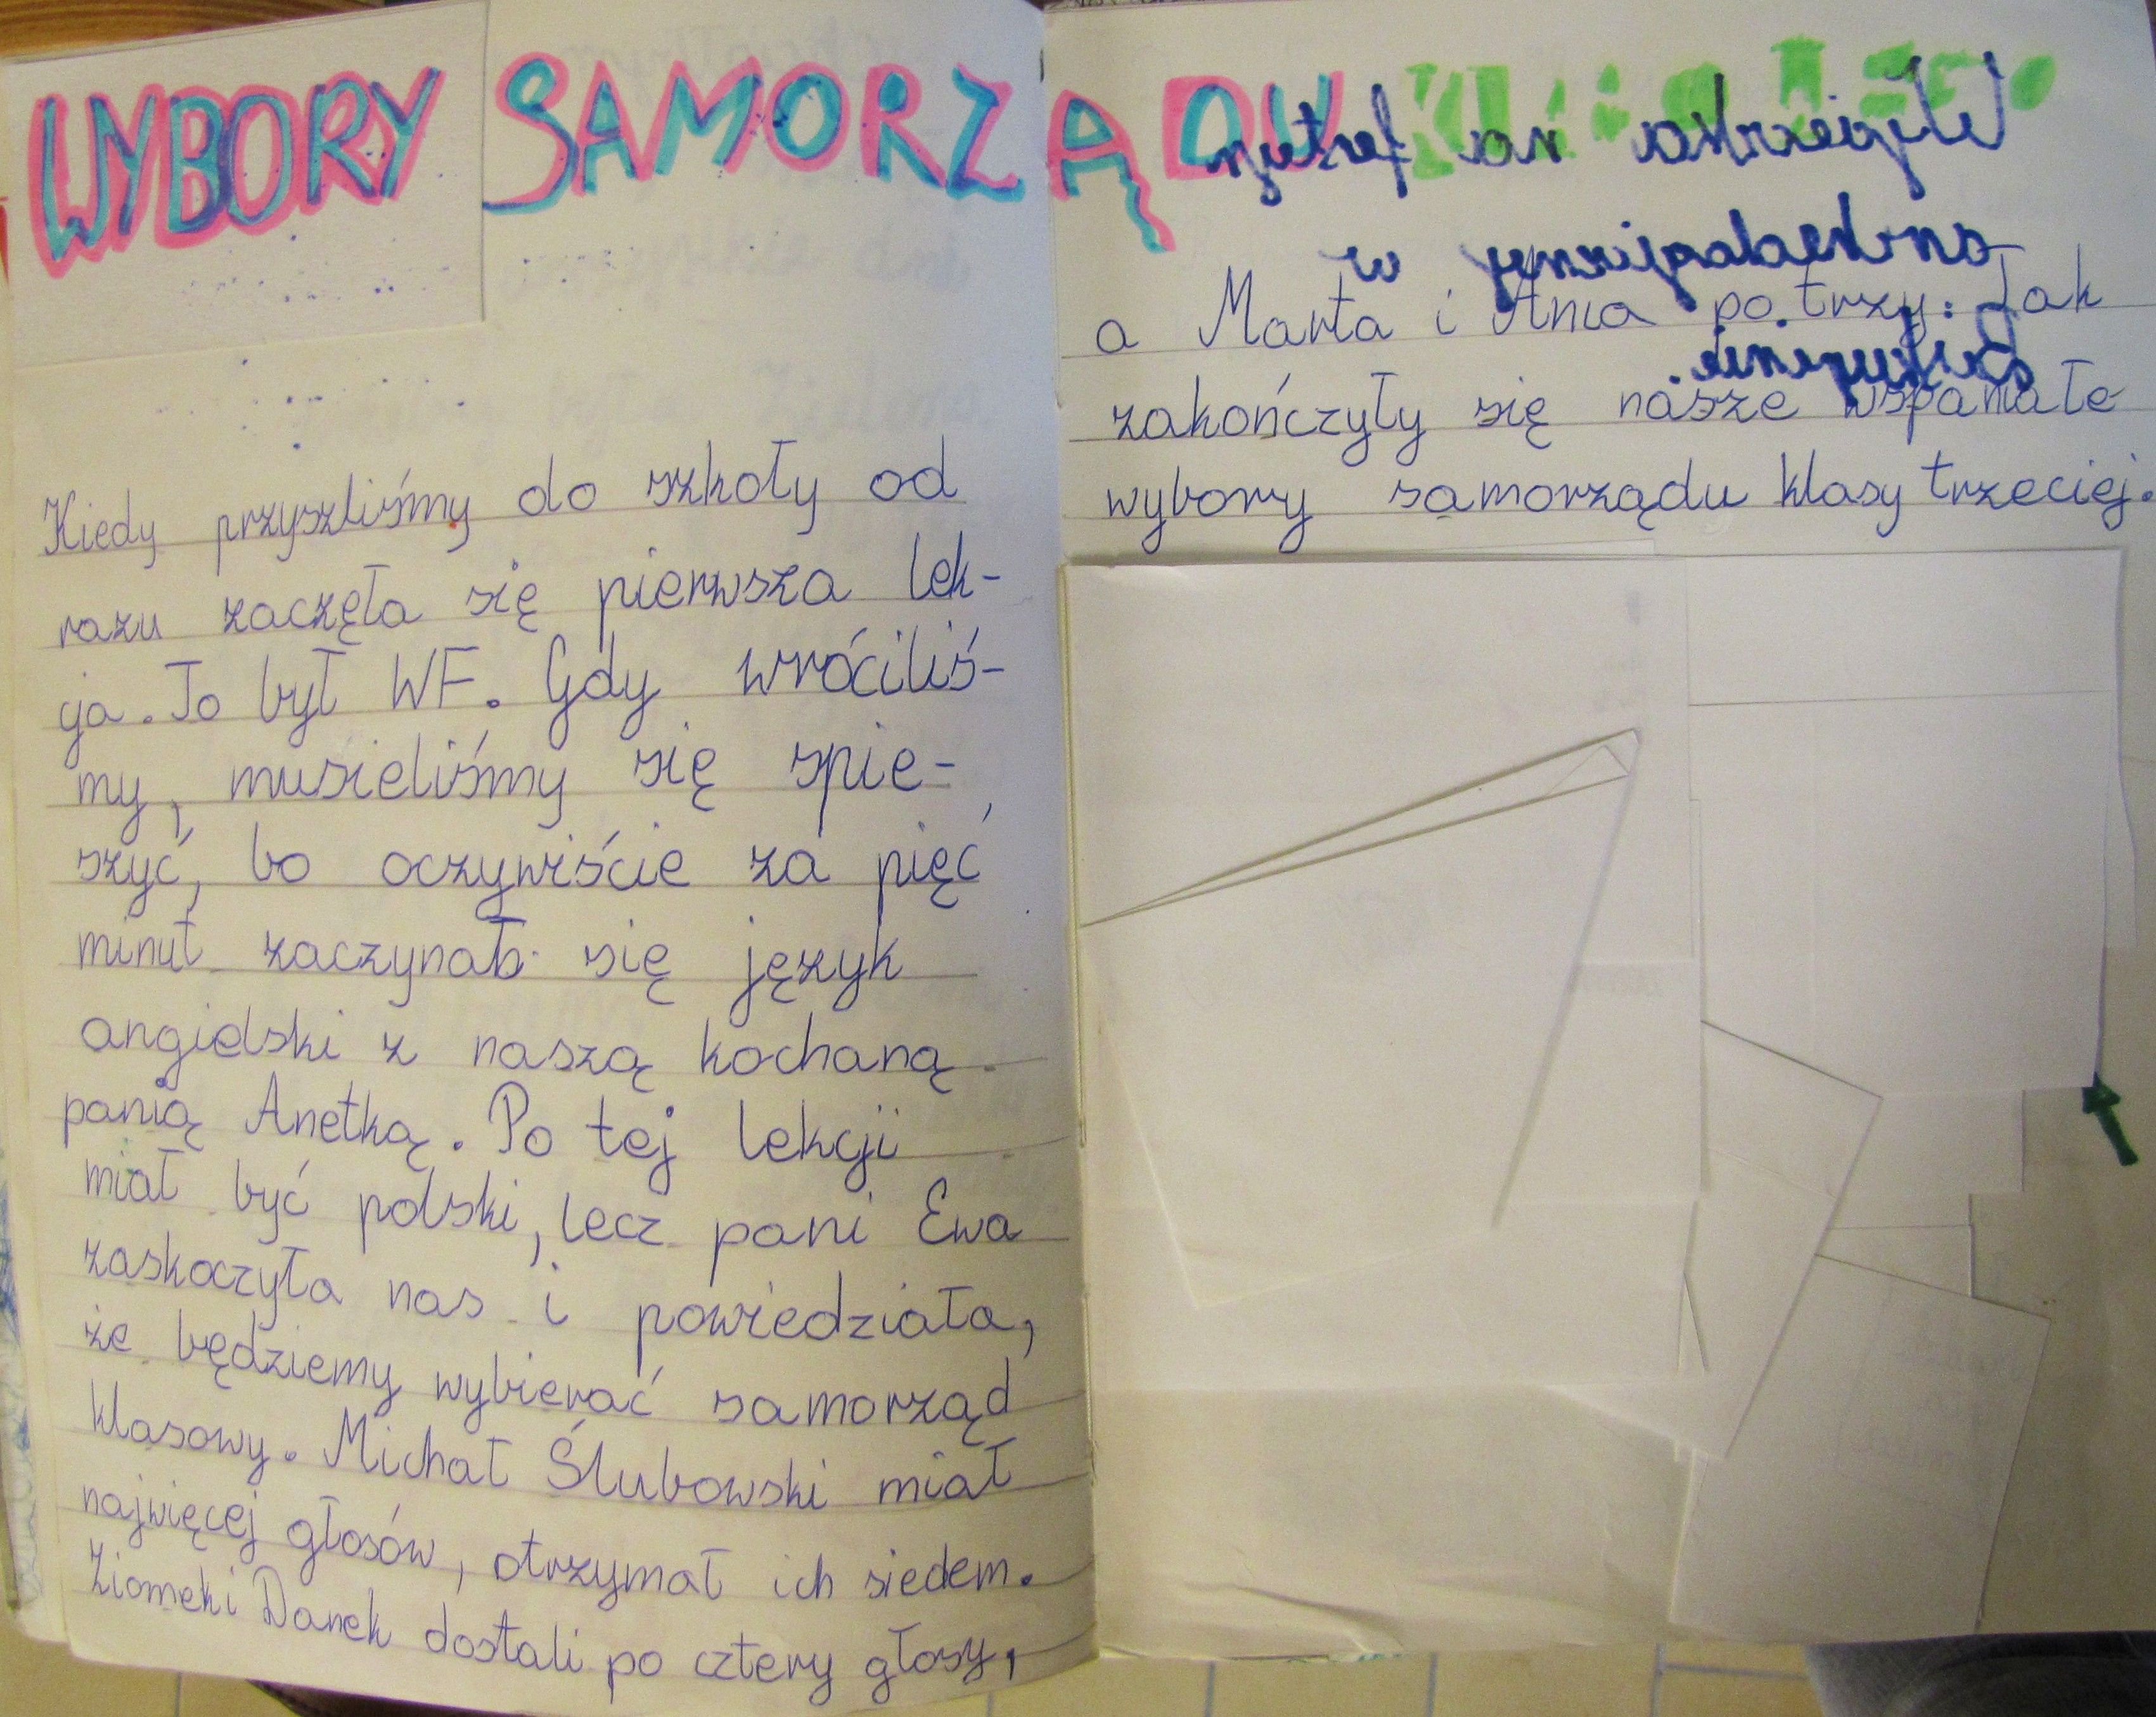 WYBORY SAMORZĄDU
Kiedy przyszliśmy do szkoły od
razu zaczęła się pierwsza lek-
cja. To był WF. Gdy wróciliś-
my, musieliśmy się spie-
szyć, bo oczywiście za pięć
minut zaczynał się język
angielski z naszą kochaną
panią Anetką. Po tej lekcji
miał być polski, lecz pani Ewa
zaskoczyła nas i powiedziała,
że będziemy wybierać samorząd
klasowy. Michał Ślubowski miał
najwięcej głosów, otrzymał ich siedem.
Ziomek i Danek dostali po cztery głosy,
a Marta i Ania po trzy. Tak
zakończyły się nasze wspaniałe
wybory samorządu klasy trzeciej.
Wycieczka na festyn
archeologiczny w